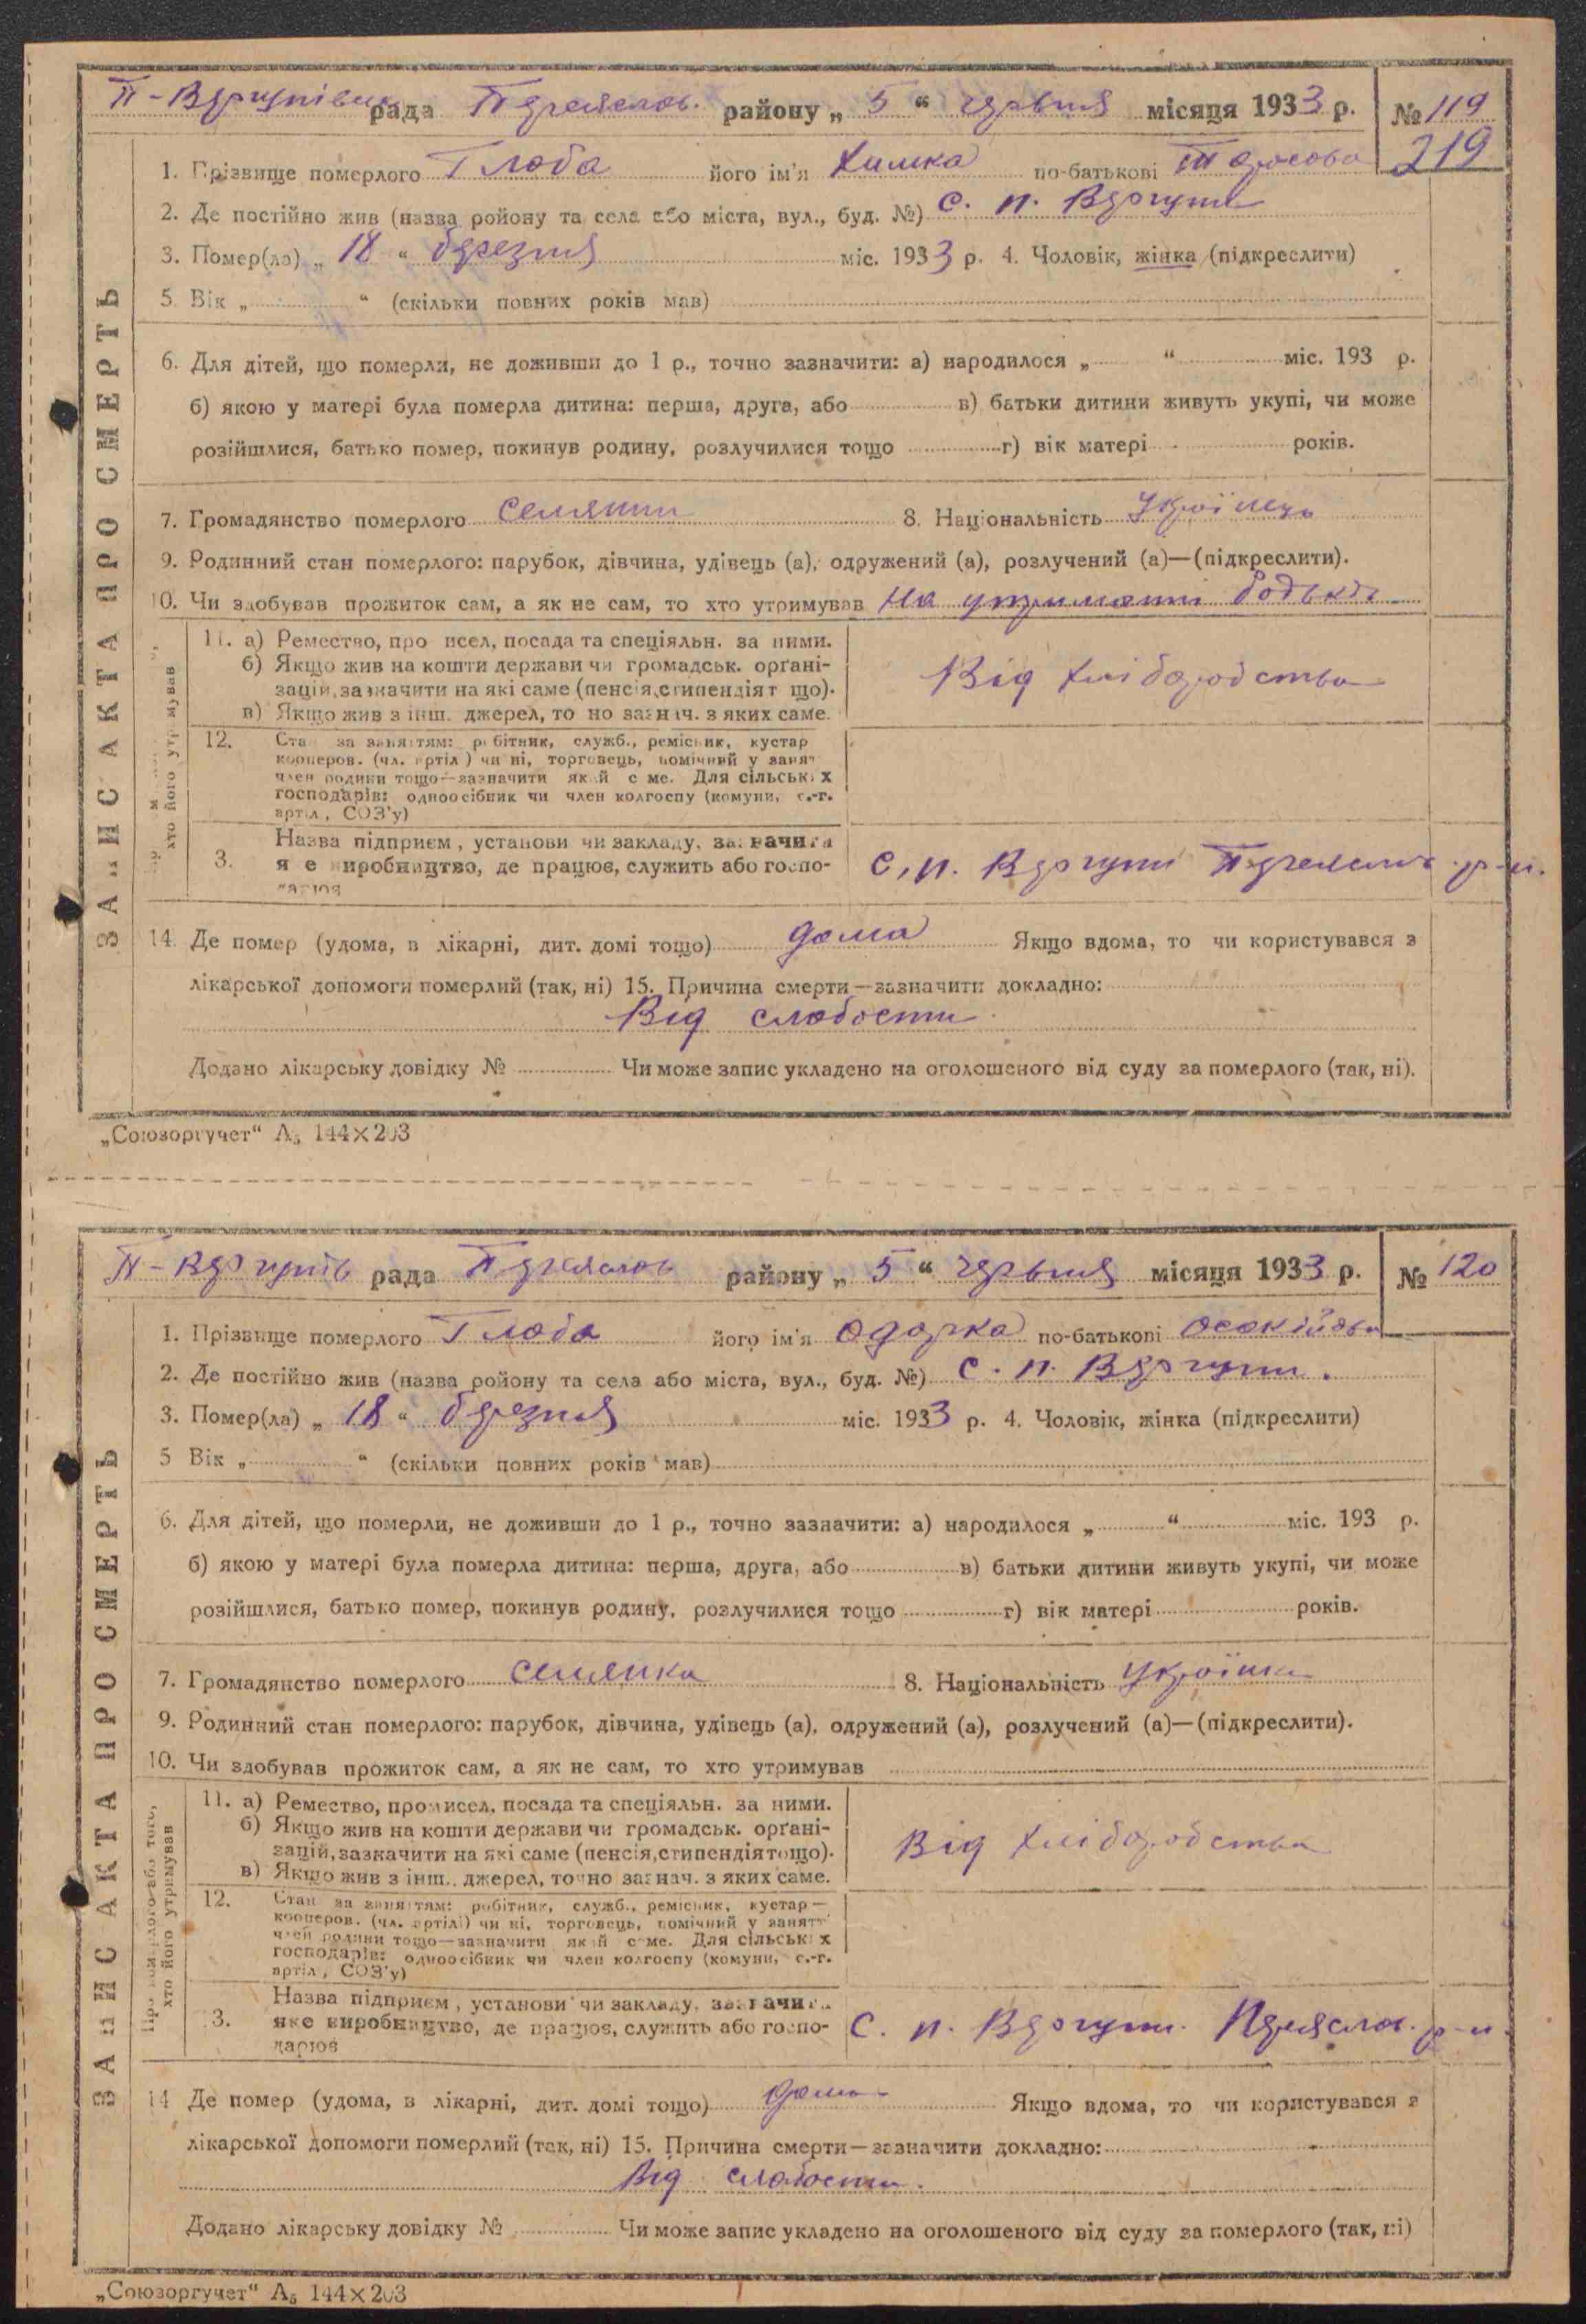 рада Переяслов. району „ 5 “ червня місяця 1933 р. № 119
219
1. Прізвище померлого Глоба його ім'я Химка по-батькові Тарасова
2. Де постійно жив (назва ройону та села або міста, вул., буд. №) с. п. Вергуни
3. Помер(ла) „ 18 “ березня міс. 1933 р. 4. Чоловік, жінка (підкреслити)
5. Вік „ “ (скільки повних років мав)
6. Для дітей, що померли, не доживши до 1 р., точно зазначити: а) народилося „ “ міс. 193 р.
б) якою у матері була померла дитина: перша, друга, або в) батьки дитини живуть укупі, чи може
розійшлися, батько помер, покинув родину, розлучилися тощо г) вік матері років.
7. Громадянство померлого селянин 8. Національність Українець
9. Родинний стан померлого: парубок, дівчина, удівець (а), одружений (а), розлучений (а)—(підкреслити).
10. Чи здобував прожиток сам, а як не сам, то хто утримував на утриманні батьків
11. а) Ремество, про исел, посада та спеціяльн. за ними.
б) Якщо жив на кошти держави чи громадськ. орґані-
зацій, зазначити на які саме (пенсія, стипендіят що).
в) Якщо жив з інш. джерел, то но зазнач. з яких саме.
Від хліборобства
12. Ста за заняттям: робітник, служб., ремісник, кустар
кооперов. (чл. артіл ) чи ні, торговець, помічний у занят
член родини тощо—зазначити як й с ме. Для сільськ х
господарів: одноосібник чи член колгоспу (комуни, с.-г.
артіл, СОЗ'у)
3. Назва підприєм , установи чи закладу, зазначити
я е виробництво, де працює, служить або госпо-
дарює
с. п. Вергуни Переяслов р-н.
14. Де помер (удома, в лікарні, дит. домі тощо) дома Якщо вдома, то чи користувався з
лікарської допомоги померлий (так, ні) 15. Причина смерти—зазначити докладно:
Від слабости
Додано лікарську довідку № Чи може запис укладено на оголошеного від суду за померлого (так, ні).
ЗАПИС АКТА ПРО СМЕРТЬ
хто його утримував
„Союзоргучет“ А5 144×203
рада Переяслов району „ 5 “ червня місяця 1933 р. № 120
1. Прізвище померлого Глоба його ім'я Одарка по-батькові
2. Де постійно жив (назва ройону та села або міста, вул., буд. №) с. п. Вергуни.
3. Помер(ла) „ 18 “ березня міс. 1933 р. 4. Чоловік, жінка (підкреслити)
5 Вік „ “ (скільки повних років мав)
6. Для дітей, що померли, не доживши до 1 р., точно зазначити: а) народилося „ “ міс. 193 р.
б) якою у матері була померла дитина: перша, друга, або в) батьки дитини живуть укупі, чи може
розійшлися, батько помер, покинув родину, розлучилися тощо г) вік матері років.
7. Громадянство померлого селянка 8. Національність Українка
9. Родинний стан померлого: парубок, дівчина, удівець (а), одружений (а), розлучений (а)—(підкреслити).
10. Чи здобував прожиток сам, а як не сам, то хто утримував
11. а) Ремество, промисел, посада та спеціяльн. за ними.
б) Якщо жив на кошти держави чи громадськ. орґані-
зацій, зазначити на які саме (пенсія, стипендія тощо).
в) Якщо жив з інш. джерел, точно зазнач. з яких саме.
Від хліборобства
12. Стан за заняттям: робітник, служб., ремісник, кустар—
кооперов. (чл. артілі) чи ні, торговець, помічний у занятт
член родини тощо—зазначити як й саме. Для сільськ х
господарів: одноосібник чи член колгоспу (комуни, с.-г.
артіл, СОЗ'у)
3. Назва підприєм , установи чи закладу, зазначити
яке виробництво, де працює, служить або госпо-
дарює
с. п. Вергуни. Переяслов. р-н.
14 Де помер (удома, в лікарні, дит. домі тощо) дома Якщо вдома, то чи користувався з
лікарської допомоги померлий (так, ні) 15. Причина смерти—зазначити докладно:
Від слабости.
Додано лікарську довідку № Чи може запис укладено на оголошеного від суду за померлого (так, ні)
ЗАПИС АКТА ПРО СМЕРТЬ
Про померлого або того,
хто його утримував
„Союзоргучет“ А5 144×203